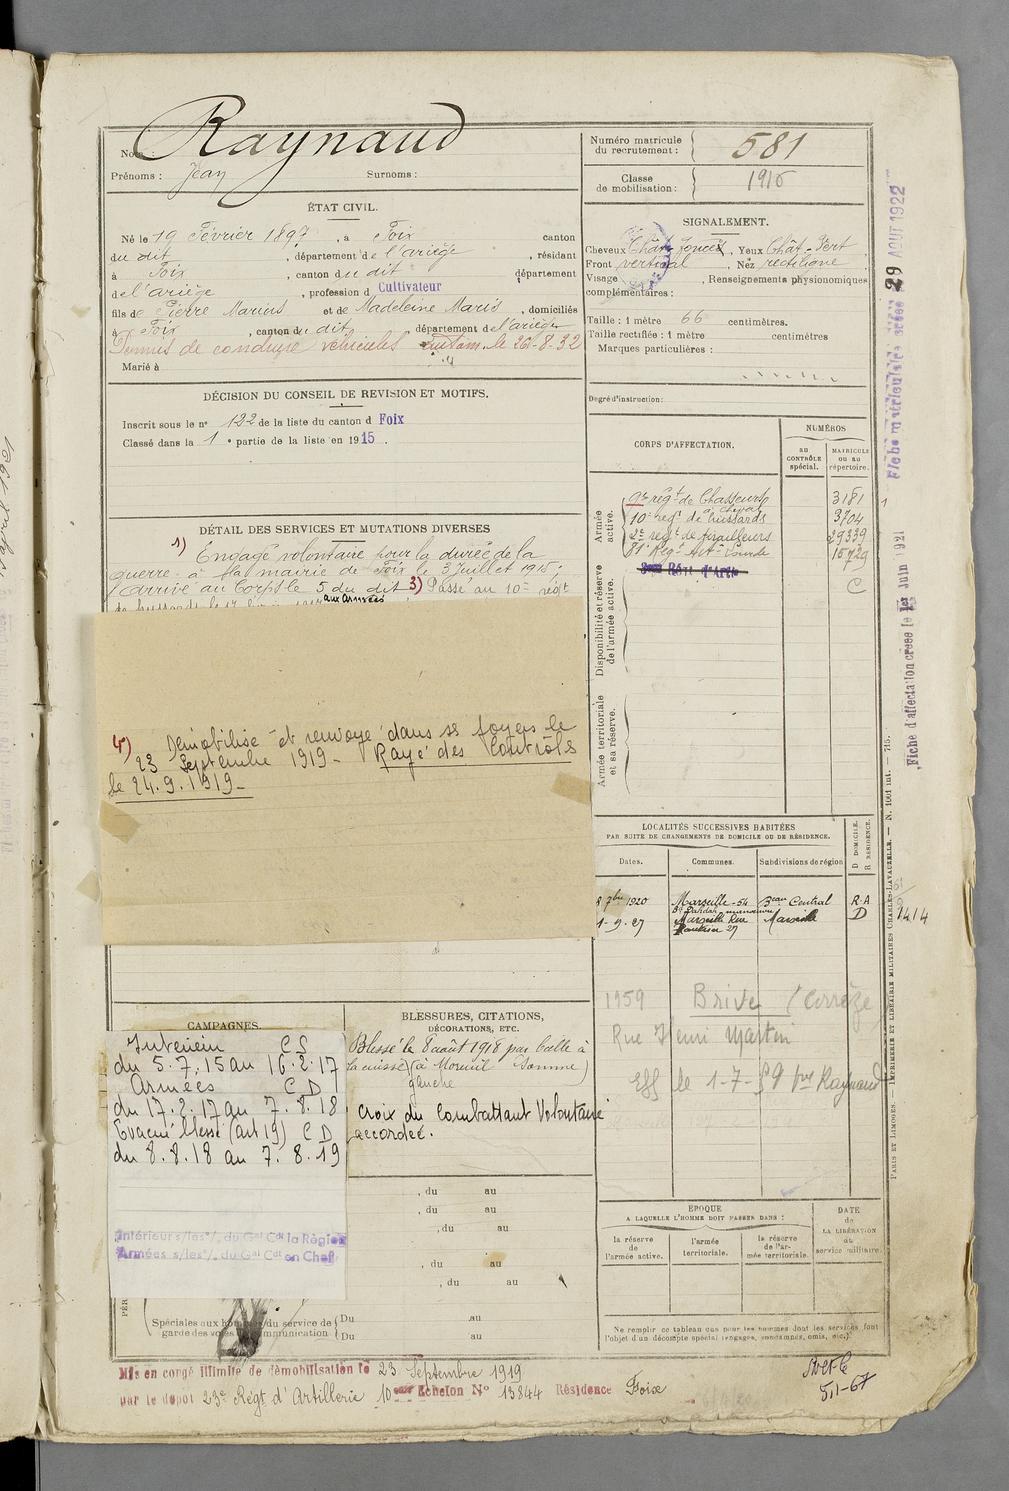 Nom : Raynaud
Prénoms : Jean Surnoms :
ÉTAT CIVIL.
Né le 19 Février 1897, à Foix canton
du dit, département de l'ariège, résidant
à Foix, canton du dit, département
de l'ariège, profession d Cultivateur
fils de Pierre Marius et de Madeleine Maris, domiciliés
à Foix, canton du dit, département de l'ariège
Permis de conduire véhicules autom. le 26-8-32
Marié à
DÉCISION DU CONSEIL DE REVISION ET MOTIFS.
Inscrit sous le n° 122 de la liste du canton d Foix
Classé dans la 1e partie de la liste en 1915.
DÉTAIL DES SERVICES ET MUTATIONS DIVERSES
1) Engagé volontaire pour la durée de la
guerre à la mairie de Foix le 3 Juillet 1915;
Arrivé au Corps le 5 du dit 3) Passé au 10e régt
aux armées
4) Démobilisé et renvoyé dans ses foyers le
23 Septembre 1919 - Rayé des Controls
le 24.9.1919 -
CAMPAGNES.
Interieur CS
du 5.7.15 au 16.2.17
Armées CD
du 17.2.17 au 7.8.18
Evacué blessé (art 19) CD
du 8.8.18 au 7.8.19
Intérieur s/les°/, du Gal Cdt la Région
Armées s/les°/, du Gal Cdt en Chef
BLESSURES, CITATIONS,
DÉCORATIONS, ETC.
Blessé le 8 août 1918 par balle à
la cuisse (à Moreuil Somme)
gauche
Croix du Combattant Volontaire
accordée.
, du au
, du au
, du au
, du au
, du au
Spéciales aux hommes du service de
garde des voies de communication
Du au
Du au
Mis en congé illimité de démobilisation le 23 Septembre 1919
par le dépôt 23e Régt d'Artillerie 10eme Echelon N° 13844 Résidence Foix
Numéro matricule
du recrutement : 581
Classe
de mobilisation : 1915
SIGNALEMENT.
Cheveux Chât foncés, Yeux Chât-Vert
Front vertical, Nez rectiligne
Visage , Renseignements physionomiques
complémentaires :
Taille : 1 mètre 66 centimètres.
Taille rectifiée : 1 mètre centimètres
Marques particulières :
Degré d'instruction :
CORPS D'AFFECTATION.
NUMÉROS
AU CONTRÔLE spécial.
MATRICULE OU AU répertoire.
Armée active.
9e régt de Chasseurs 3181
à cheval
10e régt de hussards 3704
2e régt de tirailleurs 29339
81e Régt Art-Lourde 15729
C
Disponibilité et réserve de l'armée active.
Armée territoriale et sa réserve.
LOCALITÉS SUCCESSIVES HABITÉES
PAR SUITE DE CHANGEMENTS DE DOMICILE OU DE RÉSIDENCE.
Dates. Communes. Subdivisions de région
D DOMICILE.
R RÉSIDENCE.
8 7bre 1920 Marseille - 54 Beau Central R.A
1-9-27 Marseille Rue Marseille D 1414
1959 Brive (Corrèze
Rue Henri Martin
Eff le 1-7-59 Raynaud
EPOQUE
A LAQUELLE L'HOMME DOIT PASSER DANS :
la réserve de l'armée active.
l'armée territoriale.
la réserve de l'armée territoriale.
DATE
de
LA LIBÉRATION
du
service militaire.
Ne remplir ce tableau que pour les hommes dont les services font
l'objet d'un décompte spécial (engagés, condamnés, omis, etc.)
Fiche matriculaire créée 29 AOUT 1922
Fiche d'affectation créée le 1er Juin 1921
PARIS ET LIMOGES. — IMPRIMERIE ET LIBRAIRIE MILITAIRES CHARLES-LAVAUZELLE. — N. 1001 int. — 715.